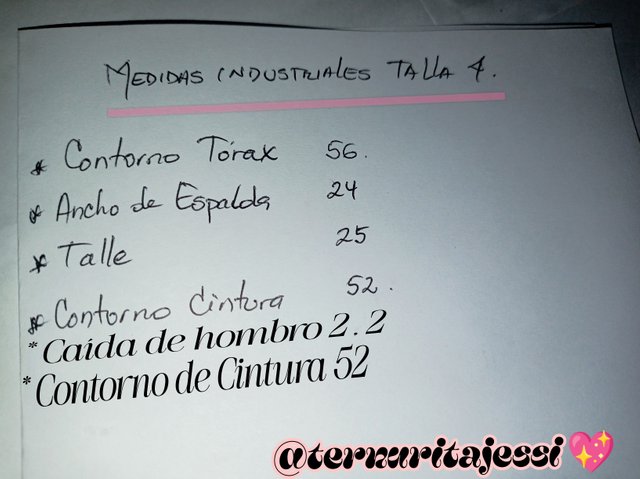 MEDIDAS INDUSTRIALES TALLA 4.
* Contorno Tórax 56.
* Ancho de Espalda 24
* Talle 25
* Contorno Cintura 52.
* Caída de hombro 2.2
* Contorno de Cintura 52
@ternuritajessi💖